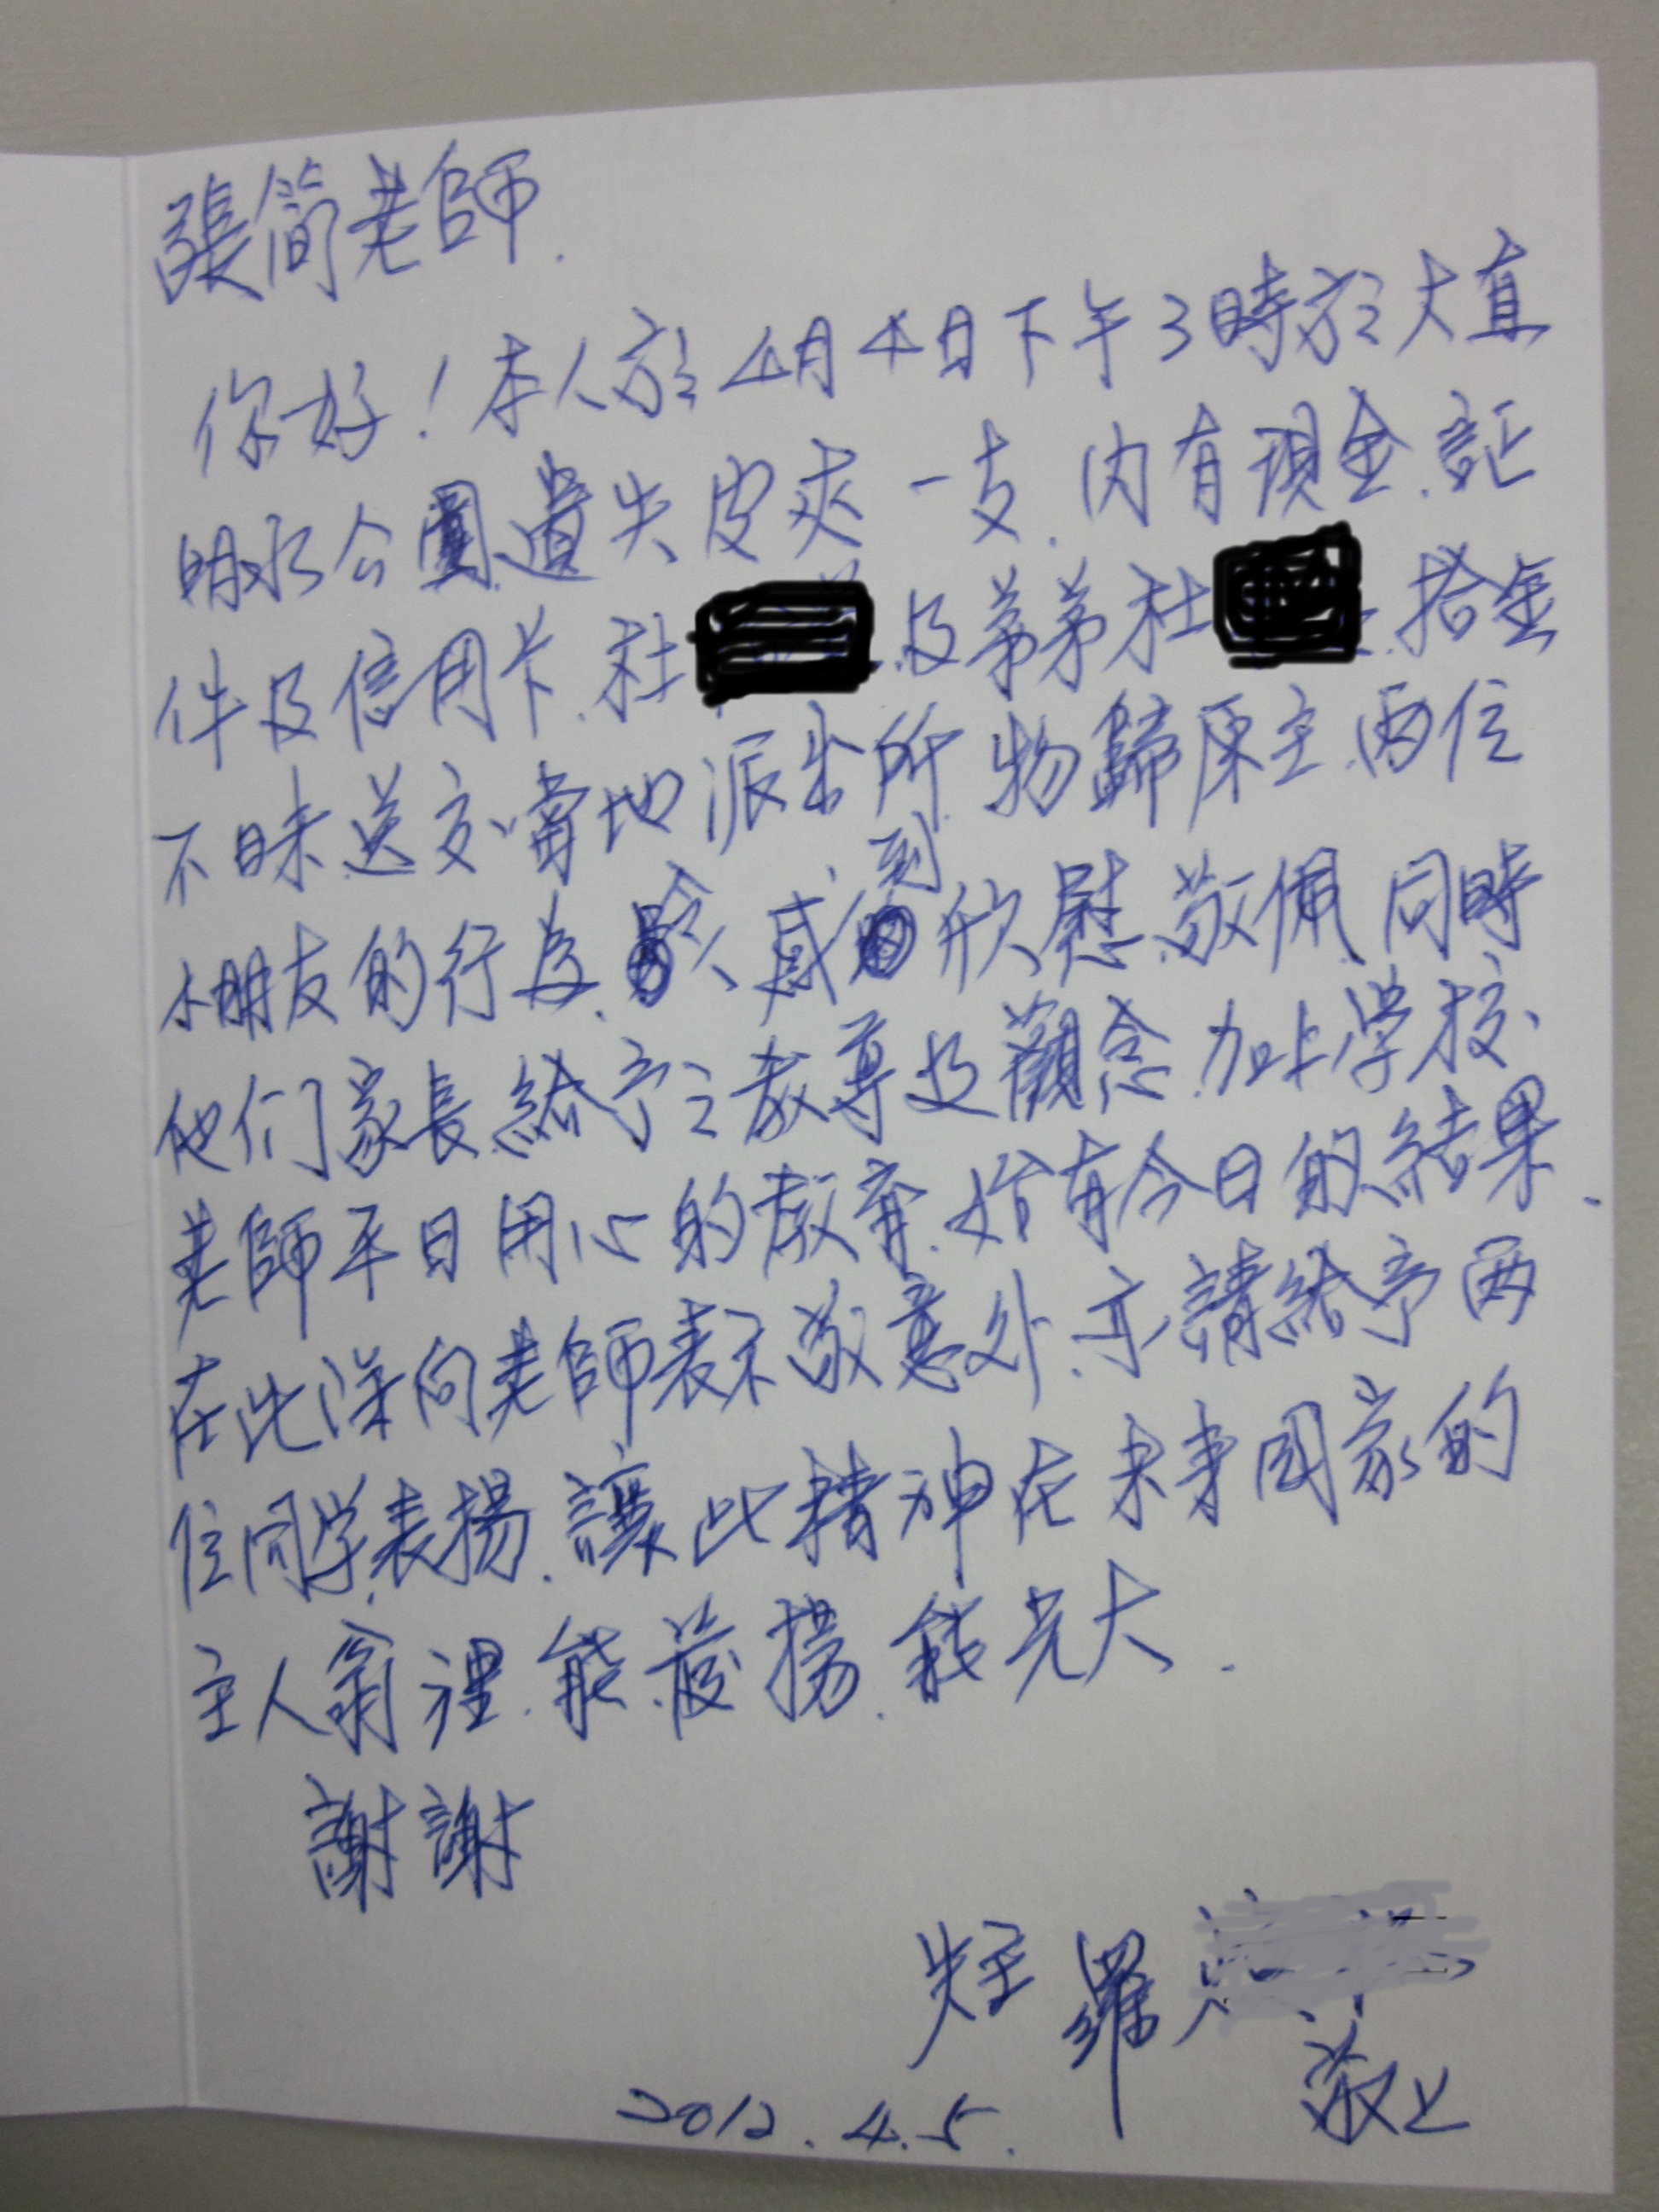 張簡老師.
你好!本人於4月4日下午3時於大直
明水公園遺失皮夾一支.內有現金.証
件及信用卡.杜 及弟弟杜 .拾金
不昧送交當地派出所.物歸原主.兩位
小朋友的行為.令人感到欣慰.敬佩.同時
他们家長給予之教導及觀念.加上学校
老師平日用心的教育.始有今日的結果.
在此除向老師表示敬意外.亦請給予兩
位同学表揚.讓此精神在未來国家的
主人翁裡.能發揚.能光大.
謝謝
失主 羅
敬上
2012.4.5.